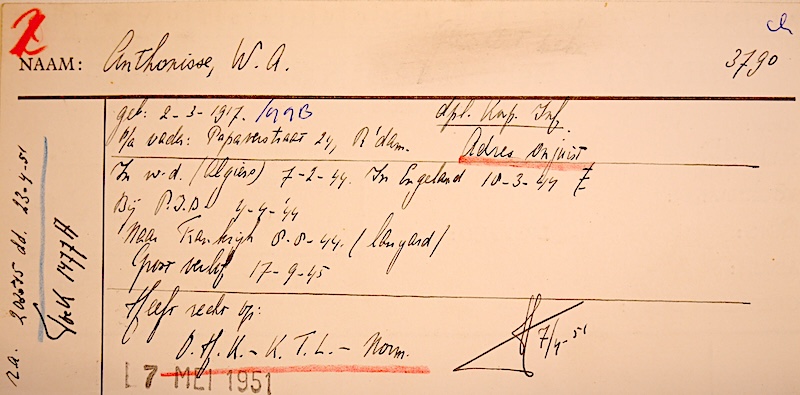 NAAM: Anthonisse, W. A. 3790
geb: 2-3-1917. dpl. Knp. Inf.
p/a vader: Papaverstraat 24, R'dam. Adres onjuist
In w.d. (Algiers) 7-2-44. In Engeland 10-3-44
Bij P.I.B. 4-4-'44
Naar Frankrijk 8-8-44. (
Groot verlof 17-9-45
Heeft recht op:
O.H.K. - K. T. L. - Norm.
7/4-51
7 MEI 1951
dd. 23-4-51
1477A